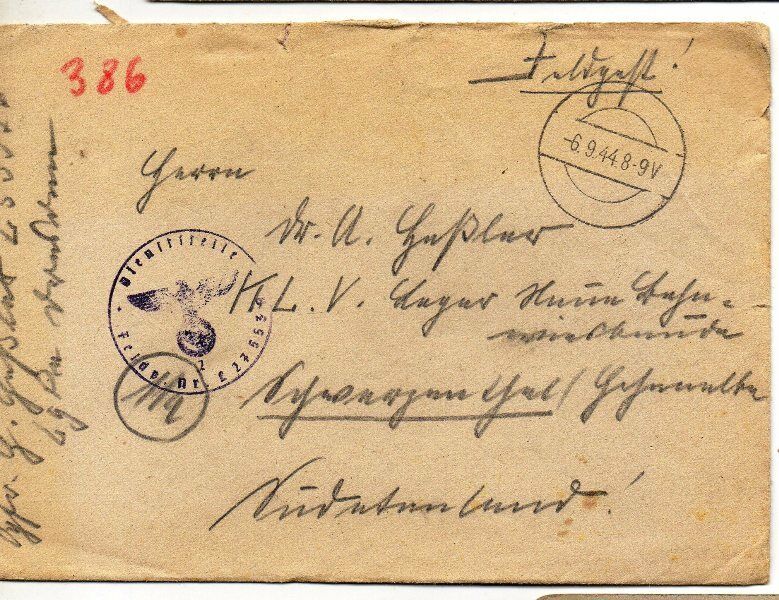 386
Feldpost!
-6.9.44.8-9V
Herrn
Dr. A. Haßler
K.L.V. Lager Neue
wiesbaude
Schwarzenthal/Hohenelbe
Sudetenland!
Dienststelle
Feldp. Nr. L 27653
2
Dresden